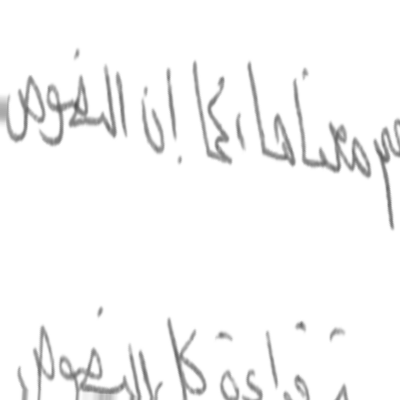 معناها، كما إن النصوص
قراءة كل النصوص